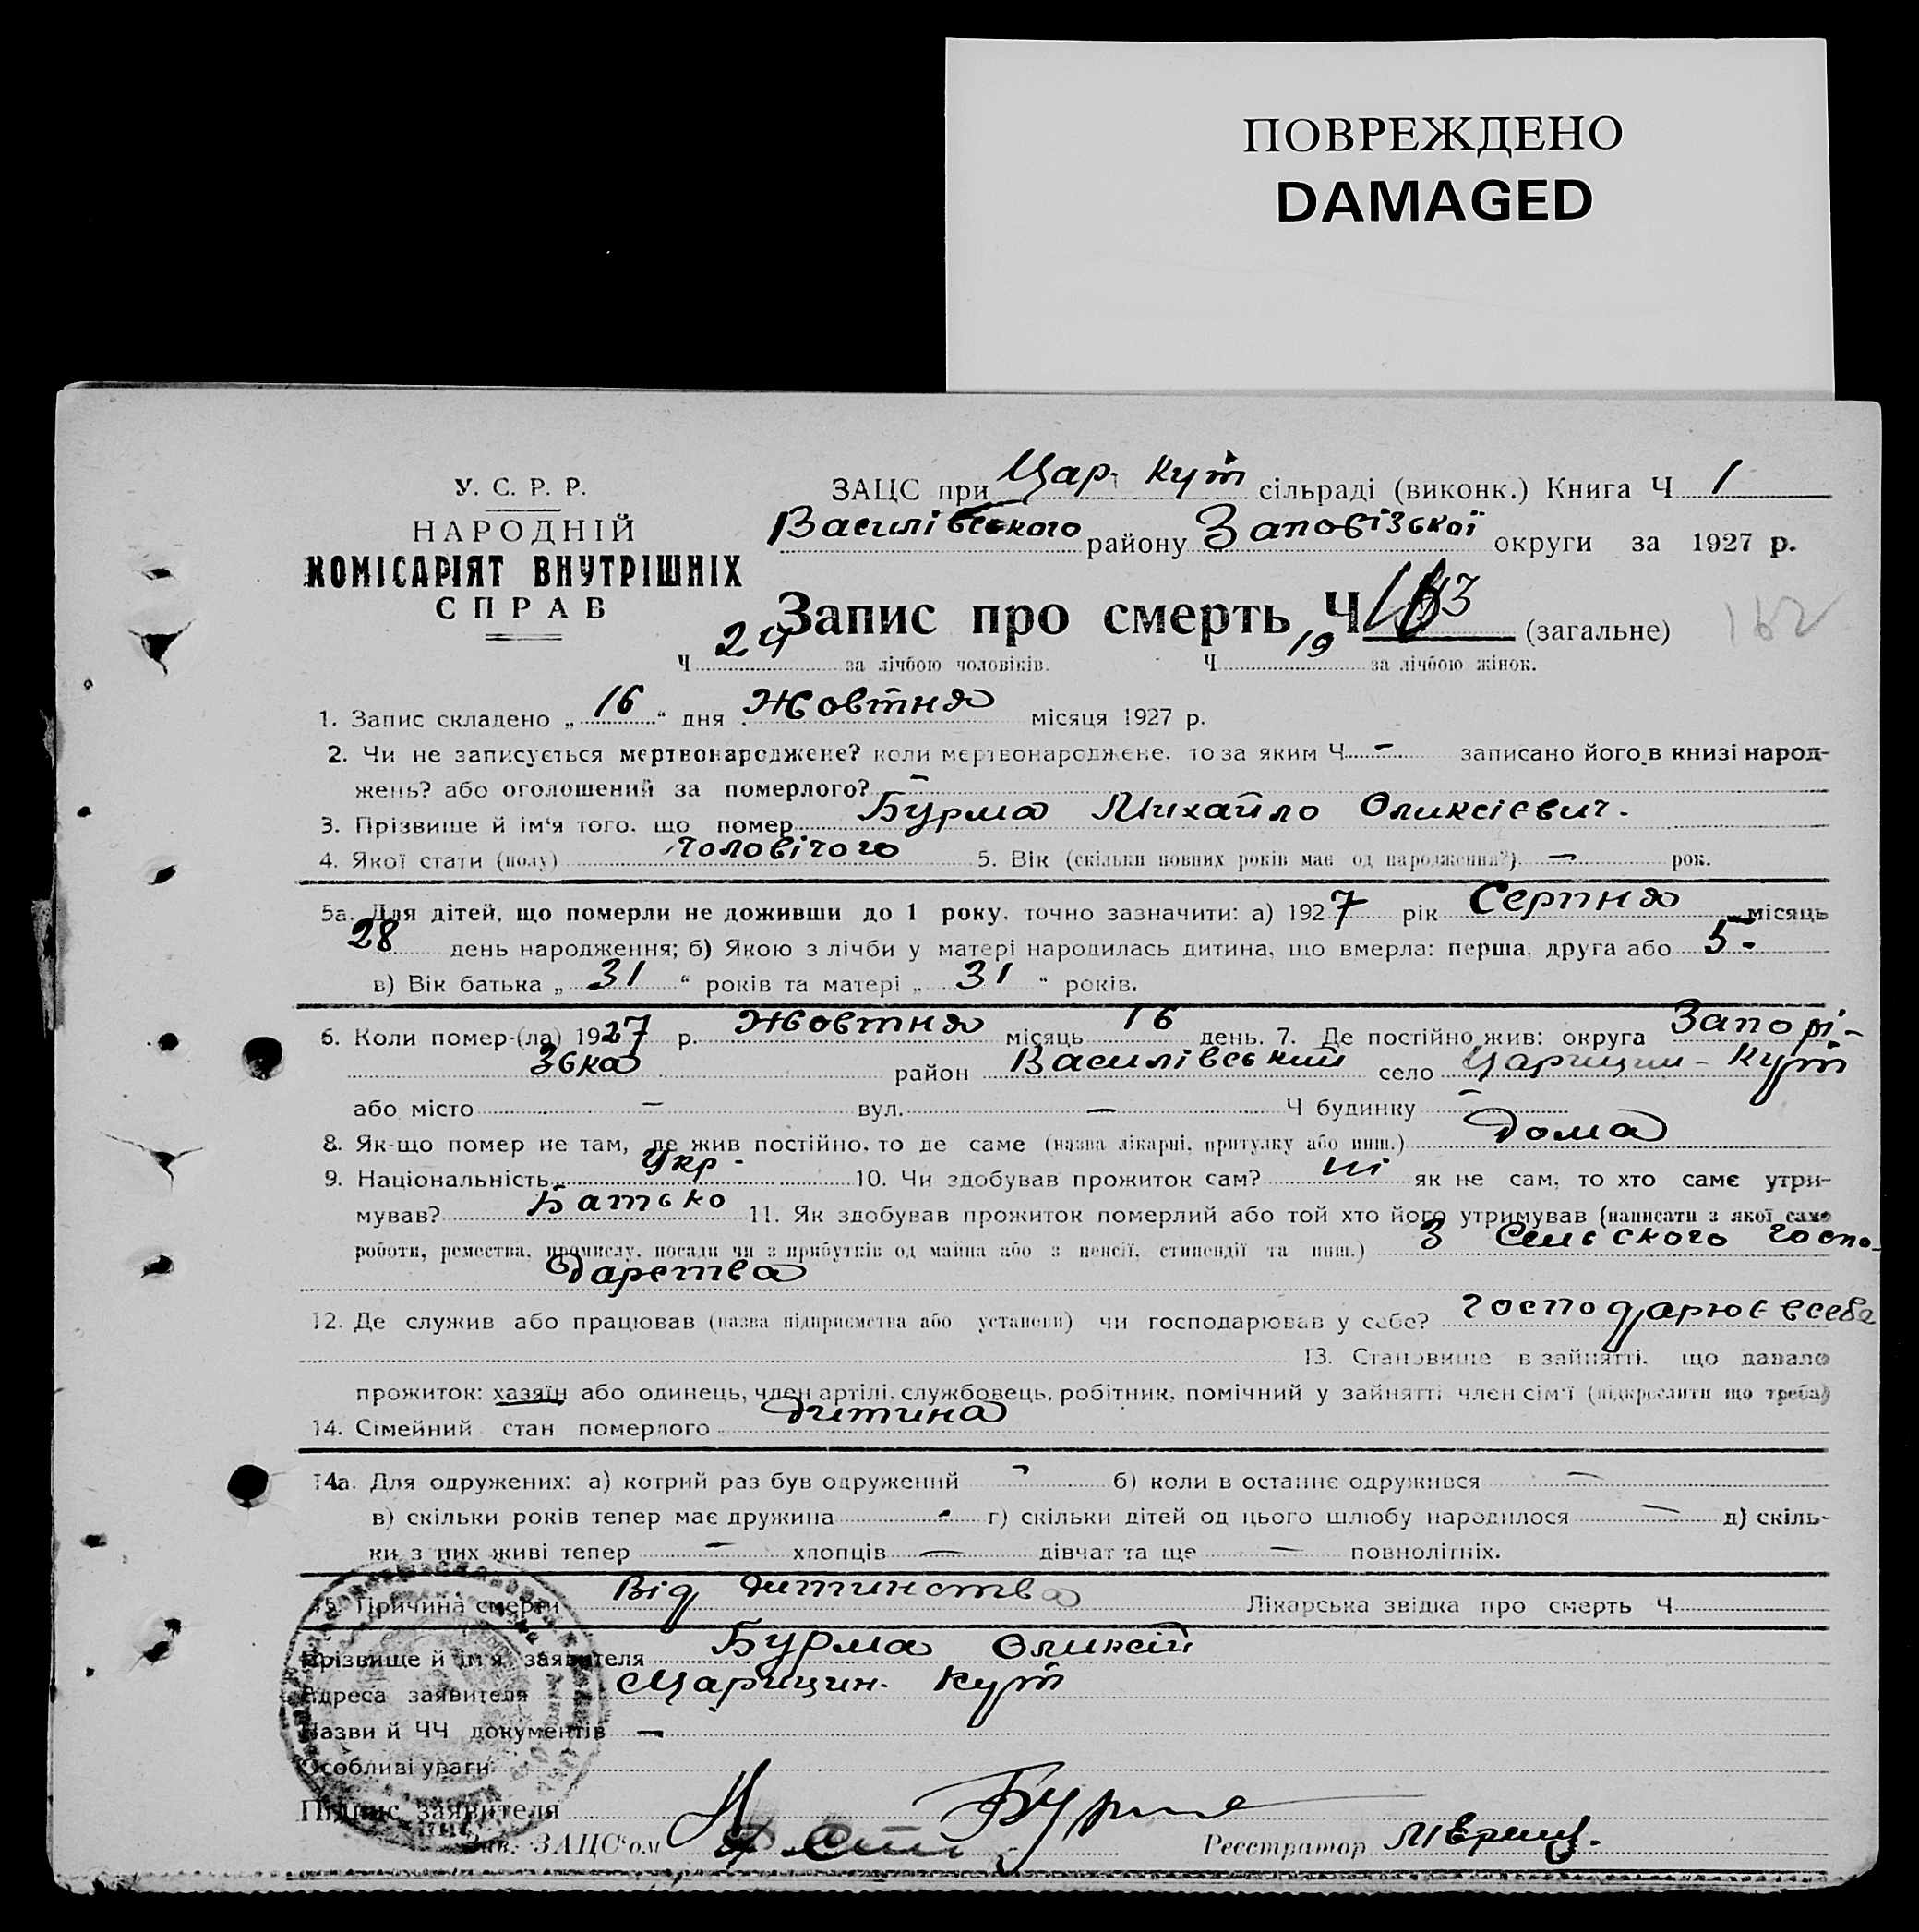 ПОВРЕЖДЕНО
DAMAGED
У. С. Р. Р.
НАРОДНІЙ
КОМІСАРІЯТ ВНУТРІШНІХ
СПРАВ
ЗАЦС при Цар. Кут сільраді (виконк.) Книга Ч 1
Василівського району Запорізької округи за 1927 р.
Запис про смерть Ч 163 (загальне) 162
Ч 24 за лічбою чоловіків. Ч 19 за лічбою жінок.
1. Запис складено „ 16 “ дня Жовтня місяця 1927 р.
2. Чи не записується мертвонароджене? коли мертвонароджене, то за яким Ч – записано його в книзі народ-
жень? або оголошений за померлого? –
3. Прізвище й ім'я того, що помер Бурма Михайло Оликсієвич.
4. Якої стати (полу) чоловічого 5. Вік (скільки повних років має од народження?) – рок.
5а. Для дітей, що померли не доживши до 1 року, точно зазначити: а) 1927 рік Серпня місяць
28 день народження; б) Якою з лічби у матері народилась дитина, що вмерла: перша, друга або 5-
в) Вік батька „ 31 “ років та матері „ 31 “ років.
6. Коли помер-(ла) 1927 р. Жовтня місяць 16 день. 7. Де постійно жив: округа Запорі-
зька район Василівський село Царицин-Кут
або місто – вул. – Ч будинку –
8. Як-що помер не там, де жив постійно, то де саме (назва лікарні, притулку або инш.) Дома
9. Національність Укр. 10. Чи здобував прожиток сам? ні як не сам, то хто саме утри-
мував? Батько 11. Як здобував прожиток померлий або той хто його утримував (написати з якої саме
роботи, ремества, промислу, посади чи з прибутків од майна або з пенсії, стипендії та инш.) З Сельского госпо-
дарства
12. Де служив або працював (назва підприємства або установи) чи господарював у себе? господарює всебе
13. Становище в зайнятті, що давало
прожиток: хазяїн або одинець, член артілі, службовець, робітник, помічний у зайнятті член сім'ї (підкреслити що треба)
14. Сімейний стан померлого дитина
14а. Для одружених: а) котрий раз був одружений – б) коли в останнє одружився –
в) скільки років тепер має дружина – г) скільки дітей од цього шлюбу народилося – д) скіль-
ки з них живі тепер – хлопців – дівчат та ще – повнолітніх.
15. Причина смерти Від дитинства Лікарська звідка про смерть Ч
Прізвище й ім'я заявителя Бурма Оликсій
Адреса заявителя Царицин. Кут
Назви й ЧЧ документів –
Особливі уваги
Підпис заявителя Бурма
Зав. ЗАЦС'ом Реєстратор